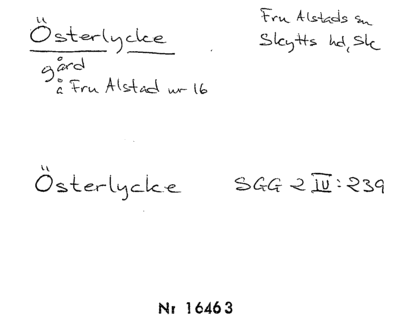 Österlycke
Fru Alstads sn
Skytts hd, Sk
gård
å Fru Alstad nr 16
Österlycke SGG 2 IV: 239
Nr 16463